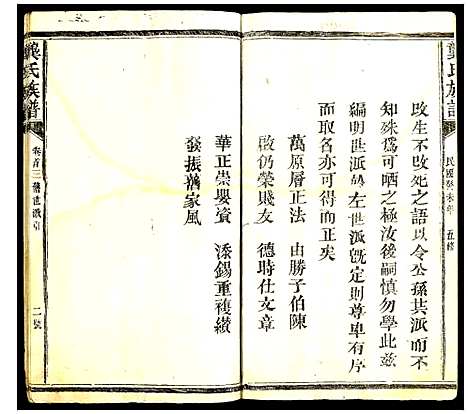 龔氏族譜
民國癸未年
五修
改生不改死之語以令公孫共派而不
知殊爲可晒之極汝後嗣愼勿學此茲
編明世派於左世派旣定則尊卑有序
而取名亦可得而正矣
萬原層正法 由勝子伯陳
啟仍榮賤友 德時仕文章
華正崇嬰濱 添錫重複纘
發振舊家風
龔氏族譜
卷首三
舊世派引
二號